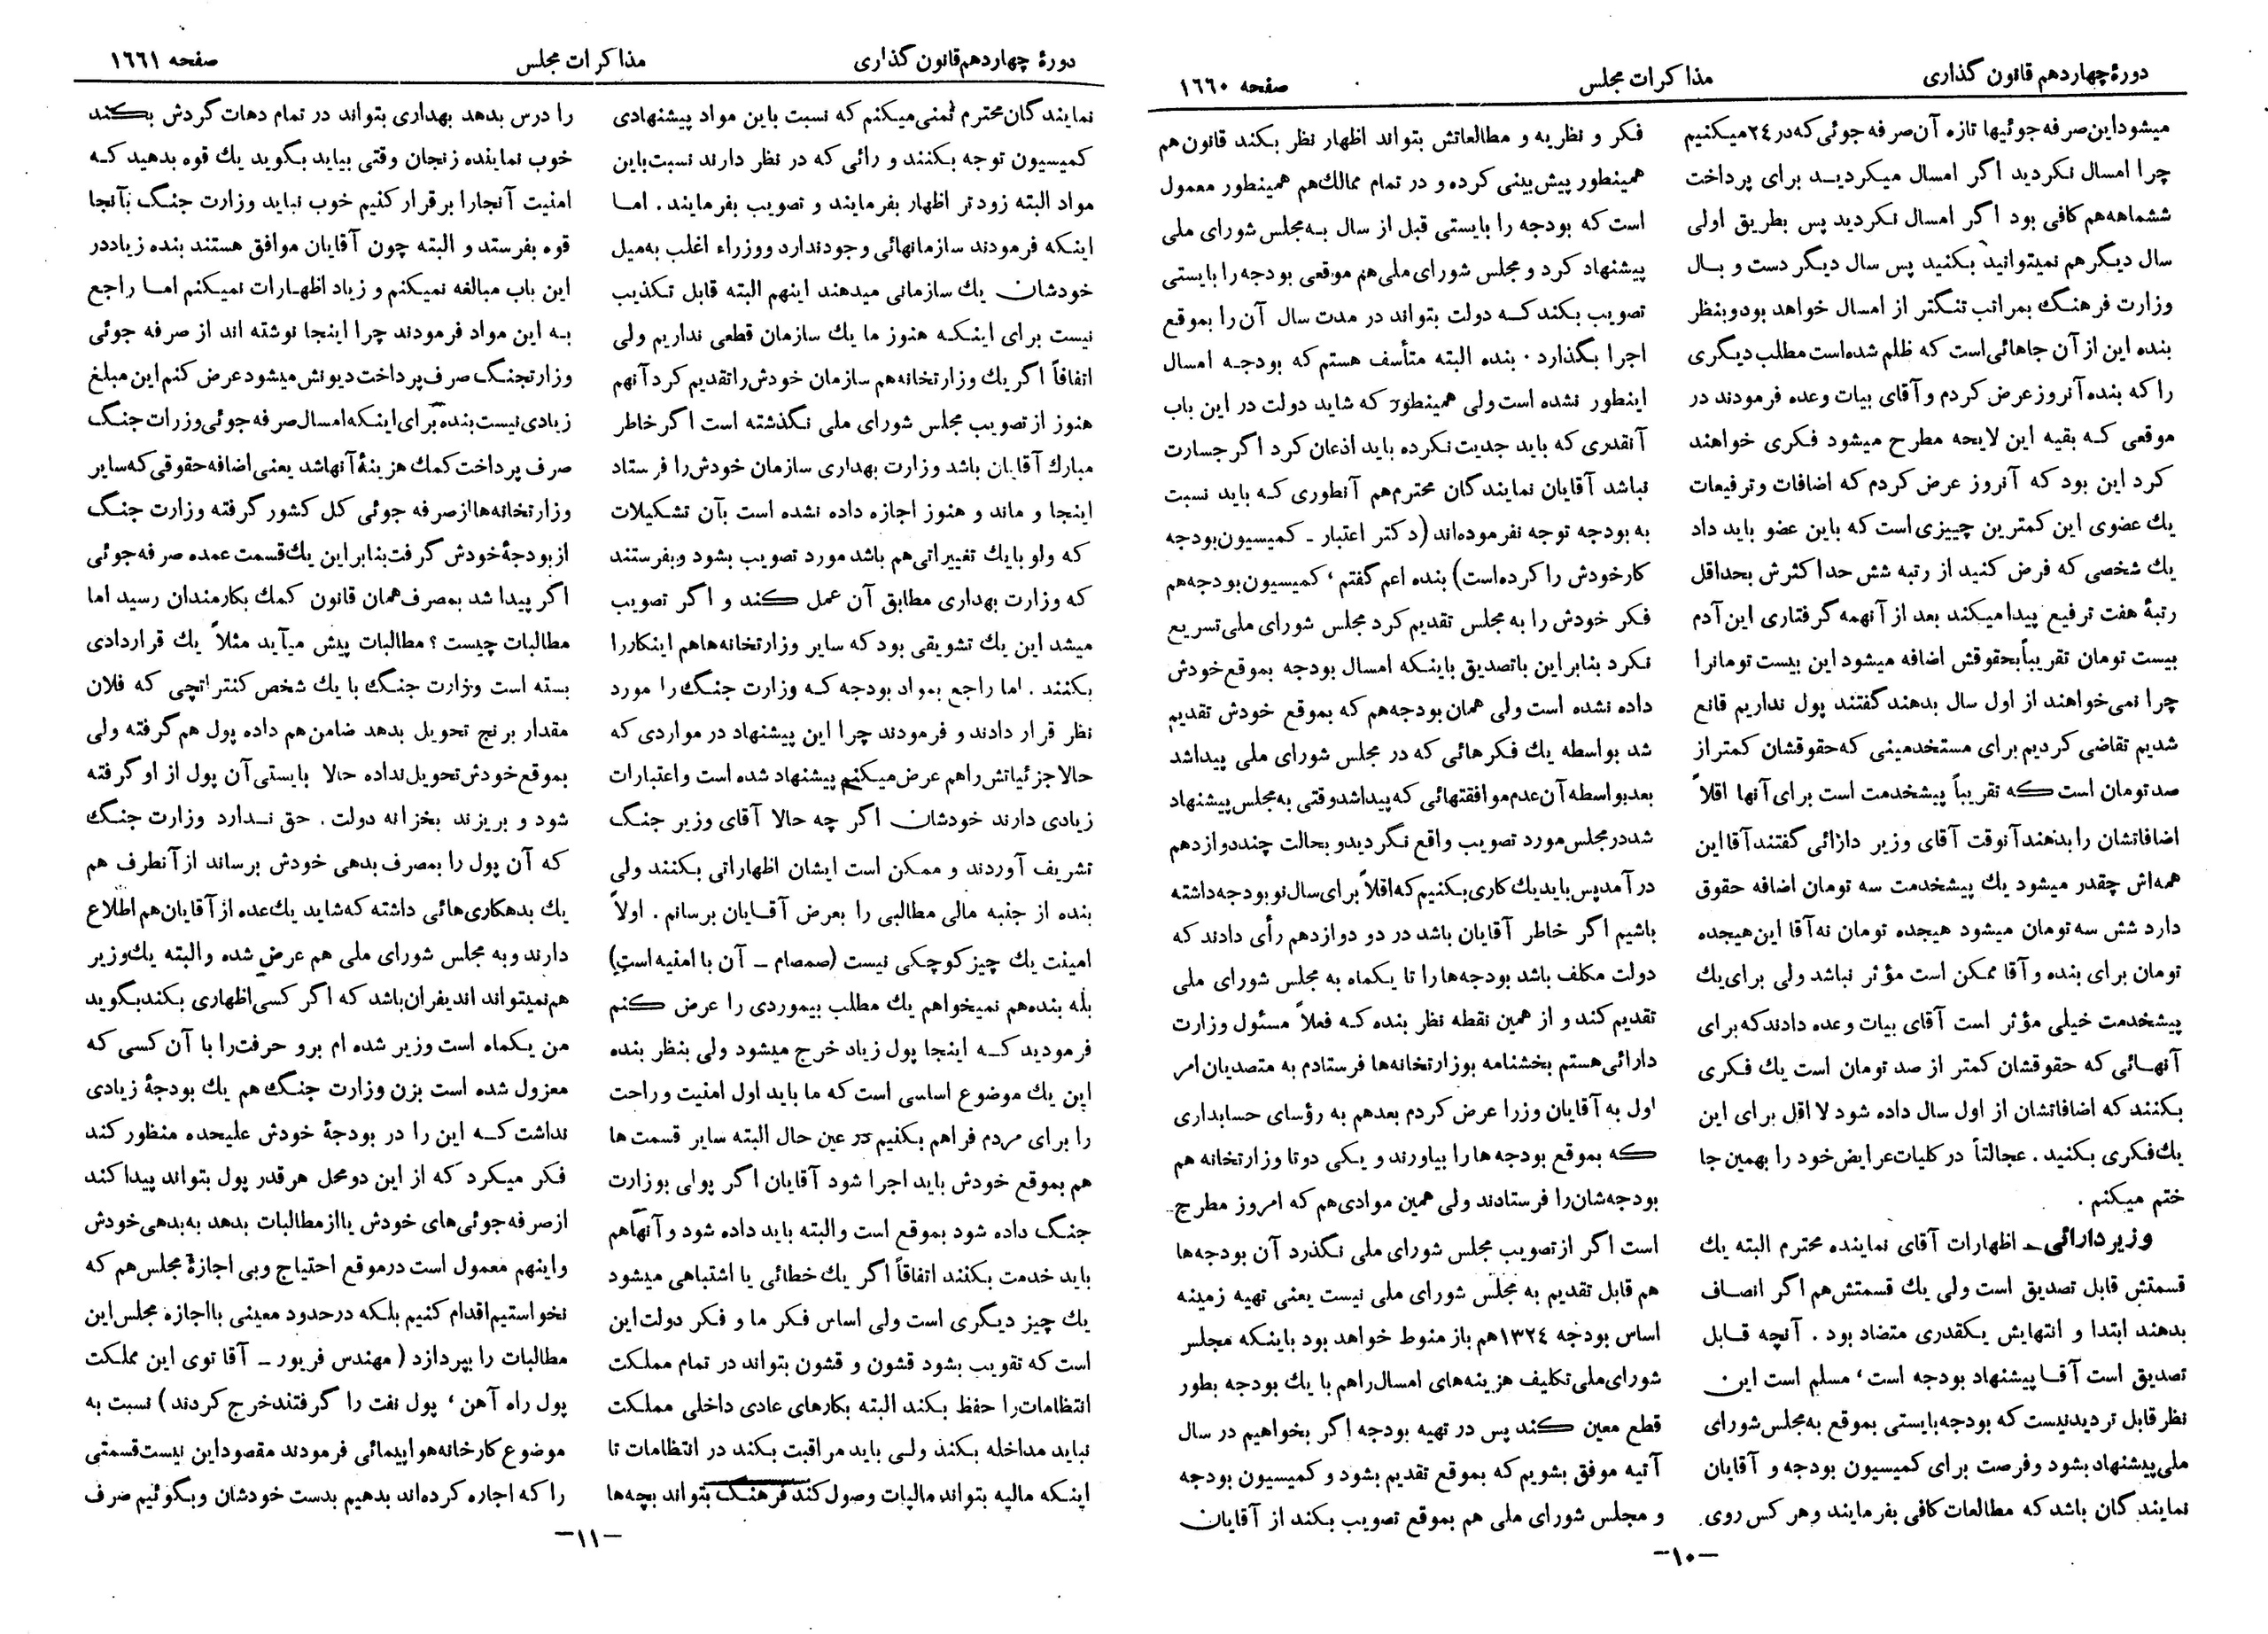 دورهٔ چهاردهم قانون گذاری
مذاکرات مجلس
صفحه ۱۶۶۰
میشود این صرفه جوئیها تازه آن صرفه جوئی که در ۲۴ میکنیم
چرا امسال نکردید اگر امسال میکردید برای پرداخت
ششماهه هم کافی بود اگر امسال نکردید پس بطریق اولی
سال دیگر هم نمیتوانید بکنید پس سال دیگر دست و بال
وزارت فرهنگ بمراتب تنگتر از امسال خواهد بود و بنظر
بنده این از آن جاهائی است که ظلم شده است مطلب دیگری
را که بنده آنروز عرض کردم و آقای بیات وعده فرمودند در
موقعی که بقیه این لایحه مطرح میشود فکری خواهند
کرد این بود که آنروز عرض کردم که اضافات و ترفیعات
یک عضوی این کمترین چیزی است که باین عضو باید داد
یک شخصی که فرض کنید از رتبه شش حداکثرش بحداقل
رتبهٔ هفت ترفیع پیدا میکند بعد از آنهمه گرفتاری این آدم
بیست تومان تقریباً بحقوقش اضافه میشود این بیست تومانرا
چرا نمی خواهند از اول سال بدهند گفتند پول نداریم قانع
شدیم تقاضی کردیم برای مستخدمینی که حقوقشان کمتر از
صد تومان است که تقریباً پیشخدمت است برای آنها اقلاً
اضافاتشان را بدهند آنوقت آقای وزیر دارائی گفتند آقا این
همه‌اش چقدر میشود یک پیشخدمت سه تومان اضافه حقوق
دارد شش سه تومان میشود هیجده تومان نه آقا این هیجده
تومان برای بنده و آقا ممکن است مؤثر نباشد ولی برای یک
پیشخدمت خیلی مؤثر است آقای بیات وعده دادند که برای
آنهائی که حقوقشان کمتر از صد تومان است یک فکری
بکنند که اضافاتشان از اول سال داده شود لااقل برای این
یک فکری بکنید . عجالتاً در کلیات عرایض خود را بهمین جا
ختم میکنم .
وزیر دارائی ـ اظهارات آقای نماینده محترم البته یک
قسمتش قابل تصدیق است ولی یک قسمتش هم اگر انصاف
بدهند ابتدا و انتهایش یکقدری متضاد بود . آنچه قابل
تصدیق است آقا پیشنهاد بودجه است ، مسلم است این
نظر قابل تردید نیست که بودجه بایستی بموقع به مجلس شورای
ملی پیشنهاد بشود و فرصت برای کمیسیون بودجه و آقایان
نمایندگان باشد که مطالعات کافی بفرمایند و هر کس روی
فکر و نظریه و مطالعاتش بتواند اظهار نظر بکند قانون هم
همینطور پیش بینی کرده و در تمام ممالک هم همینطور معمول
است که بودجه را بایستی قبل از سال به مجلس شورای ملی
پیشنهاد کرد و مجلس شورای ملی هم موقعی بودجه را بایستی
تصویب بکند که دولت بتواند در مدت سال آن را بموقع
اجرا بگذارد . بنده البته متأسف هستم که بودجه امسال
اینطور نشده است ولی همینطور که شاید دولت در این باب
آنقدری که باید جدیت نکرده باید اذعان کرد اگر جسارت
نباشد آقایان نمایندگان محترم هم آنطوری که باید نسبت
به بودجه توجه نفرموده‌اند (دکتر اعتبار ـ کمیسیون بودجه
کار خودش را کرده است) بنده اعم گفتم ، کمیسیون بودجه هم
فکر خودش را به مجلس تقدیم کرد مجلس شورای ملی تسریع
نکرد بنابراین با تصدیق باینکه امسال بودجه بموقع خودش
داده نشده است ولی همان بودجه هم که بموقع خودش تقدیم
شد بواسطه یک فکر هائی که در مجلس شورای ملی پیدا شد
بعد بواسطه آن عدم موافقتهائی که پیدا شد وقتی به مجلس پیشنهاد
شد در مجلس مورد تصویب واقع نگردید و بحالت چند دوازدهم
در آمد پس باید یک کاری بکنیم که اقلاً برای سال نو بودجه داشته
باشیم اگر خاطر آقایان باشد در دو دوازدهم رأی دادند که
دولت مکلف باشد بودجه‌ها را تا یکماه به مجلس شورای ملی
تقدیم کند و از همین نقطه نظر بنده که فعلاً مسئول وزارت
دارائی هستم بخشنامه بوزارتخانه‌ها فرستادم به متصدیان امر
اول به آقایان وزرا عرض کردم بعد هم به رؤسای حسابداری
که بموقع بودجه ها را بیاورند و یکی دو تا وزارتخانه هم
بودجه‌شان را فرستادند ولی همین موادی هم که امروز مطرح
است اگر از تصویب مجلس شورای ملی نگذرد آن بودجه‌ها
هم قابل تقدیم به مجلس شورای ملی نیست یعنی تهیه زمینه
اساس بودجه ۱۳۲۴ هم باز منوط خواهد بود باینکه مجلس
شورای ملی تکلیف هزینه‌های امسال را هم با یک بودجه بطور
قطع معین کند پس در تهیه بودجه اگر بخواهیم در سال
آتیه موفق بشویم که بموقع تقدیم بشود و کمیسیون بودجه
و مجلس شورای ملی هم بموقع تصویب بکند از آقایان
ـ۱۰ـ
دورهٔ چهاردهم قانون گذاری
مذاکرات مجلس
صفحه ۱۶۶۱
نمایندگان محترم تمنی میکنم که نسبت باین مواد پیشنهادی
کمیسیون توجه بکنند و رائی که در نظر دارند نسبت باین
مواد البته زودتر اظهار بفرمایند و تصویب بفرمایند . اما
اینکه فرمودند سازمانهائی وجود ندارد و وزراء اغلب به میل
خودشان یک سازمانی میدهند اینهم البته قابل تکذیب
نیست برای اینکه هنوز ما یک سازمان قطعی نداریم ولی
اتفاقاً اگر یک وزارتخانه هم سازمان خودش را تقدیم کرد آنهم
هنوز از تصویب مجلس شورای ملی نگذشته است اگر خاطر
مبارک آقایان باشد وزارت بهداری سازمان خودش را فرستاد
اینجا و ماند و هنوز اجازه داده نشده است بآن تشکیلات
که ولو با یک تغییراتی هم باشد مورد تصویب بشود و بفرستند
که وزارت بهداری مطابق آن عمل کند و اگر تصویب
میشد این یک تشویقی بود که سایر وزارتخانه‌ها هم اینکار را
بکنند . اما راجع بمواد بودجه که وزارت جنگ را مورد
نظر قرار دادند و فرمودند چرا این پیشنهاد در مواردی که
حالا جزئیاتش را هم عرض میکنم پیشنهاد شده است و اعتبارات
زیادی دارند خودشان اگر چه حالا آقای وزیر جنگ
تشریف آوردند و ممکن است ایشان اظهاراتی بکنند ولی
بنده از جنبه مالی مطالبی را بعرض آقایان برسانم . اولاً
امینت یک چیز کوچکی نیست (صمصام ـ آن با امنیه است)
بله بنده هم نمیخواهم یک مطلب بیموردی را عرض کنم
فرمودید که اینجا پول زیاد خرج میشود ولی بنظر بنده
این یک موضوع اساسی است که ما باید اول امنیت و راحت
را برای مردم فراهم بکنیم در عین حال البته سایر قسمت ها
هم بموقع خودش باید اجرا شود آقایان اگر پولی بوزارت
جنگ داده شود بموقع است والبته باید داده شود و آنها هم
باید خدمت بکنند اتفاقاً اگر یک خطائی یا اشتباهی میشود
یک چیز دیگری است ولی اساس فکر ما و فکر دولت این
است که تقویب بشود قشون و قشون بتواند در تمام مملکت
انتظامات را حفظ بکند البته بکارهای عادی داخلی مملکت
نباید مداخله بکند ولی باید مراقبت بکند در انتظامات تا
اینکه مالیه بتواند مالیات وصول کند فرهنگ بتواند بچه‌ها
را درس بدهد بهداری بتواند در تمام دهات گردش بکند
خوب نماینده زنجان وقتی بیاید بگوید یک قوه بدهید که
امنیت آنجا را برقرار کنیم خوب نباید وزارت جنگ بآنجا
قوه بفرستد و البته چون آقایان موافق هستند بنده زیاد در
این باب مبالغه نمیکنم و زیاد اظهارات نمیکنم اما راجع
به این مواد فرمودند چرا اینجا نوشته اند از صرفه جوئی
وزارتجنگ صرف پرداخت دیونش میشود عرض کنم این مبلغ
زیادی نیست بنده برای اینکه امسال صرفه جوئی وزرات جنگ
صرف پرداخت کمک هزینهٔ آنها شد یعنی اضافه حقوقی که سایر
وزارتخانه‌ها از صرفه جوئی کل کشور گرفته وزارت جنگ
از بودجهٔ خودش گرفت بنابراین یک قسمت عمده صرفه جوئی
اگر پیدا شد بمصرف همان قانون کمک بکارمندان رسید اما
مطالبات چیست ؟ مطالبات پیش میآید مثلاً یک قراردادی
بسته است وزارت جنگ با یک شخص کنتراتچی که فلان
مقدار برنج تحویل بدهد ضامن هم داده پول هم گرفته ولی
بموقع خودش تحویل نداده حالا بایستی آن پول از او گرفته
شود و بریزند بخزانه دولت . حق ندارد وزارت جنگ
که آن پول را بمصرف بدهی خودش برساند از آنطرف هم
یک بدهکاری هائی داشته که شاید یک عده از آقایان هم اطلاع
دارند و به مجلس شورای ملی هم عرض شده والبته یک وزیر
هم نمیتواند اندیفران باشد که اگر کسی اظهاری بکند بگوید
من یکماه است وزیر شده ام برو حرفت را با آن کسی که
معزول شده است بزن وزارت جنگ هم یک بودجهٔ زیادی
نداشت که این را در بودجهٔ خودش علیحده منظور کند
فکر میکرد که از این دو محل هر قدر پول بتواند پیدا کند
از صرفه جوئی های خودش یا از مطالبات بدهد به بدهی خودش
واینهم معمول است در موقع احتیاج وبی اجازهٔ مجلس هم که
نخواستیم اقدام کنیم بلکه در حدود معینی با اجازه مجلس این
مطالبات را بپردازد ( مهندس فریور ـ آقا توی این مملکت
پول راه آهن ، پول نفت را گرفتند خرج کردند ) نسبت به
موضوع کارخانه هواپیمائی فرمودند مقصود این نیست قسمتی
را که اجاره کرده‌اند بدهیم بدست خودشان و بگوئیم صرف
ـ۱۱ـ